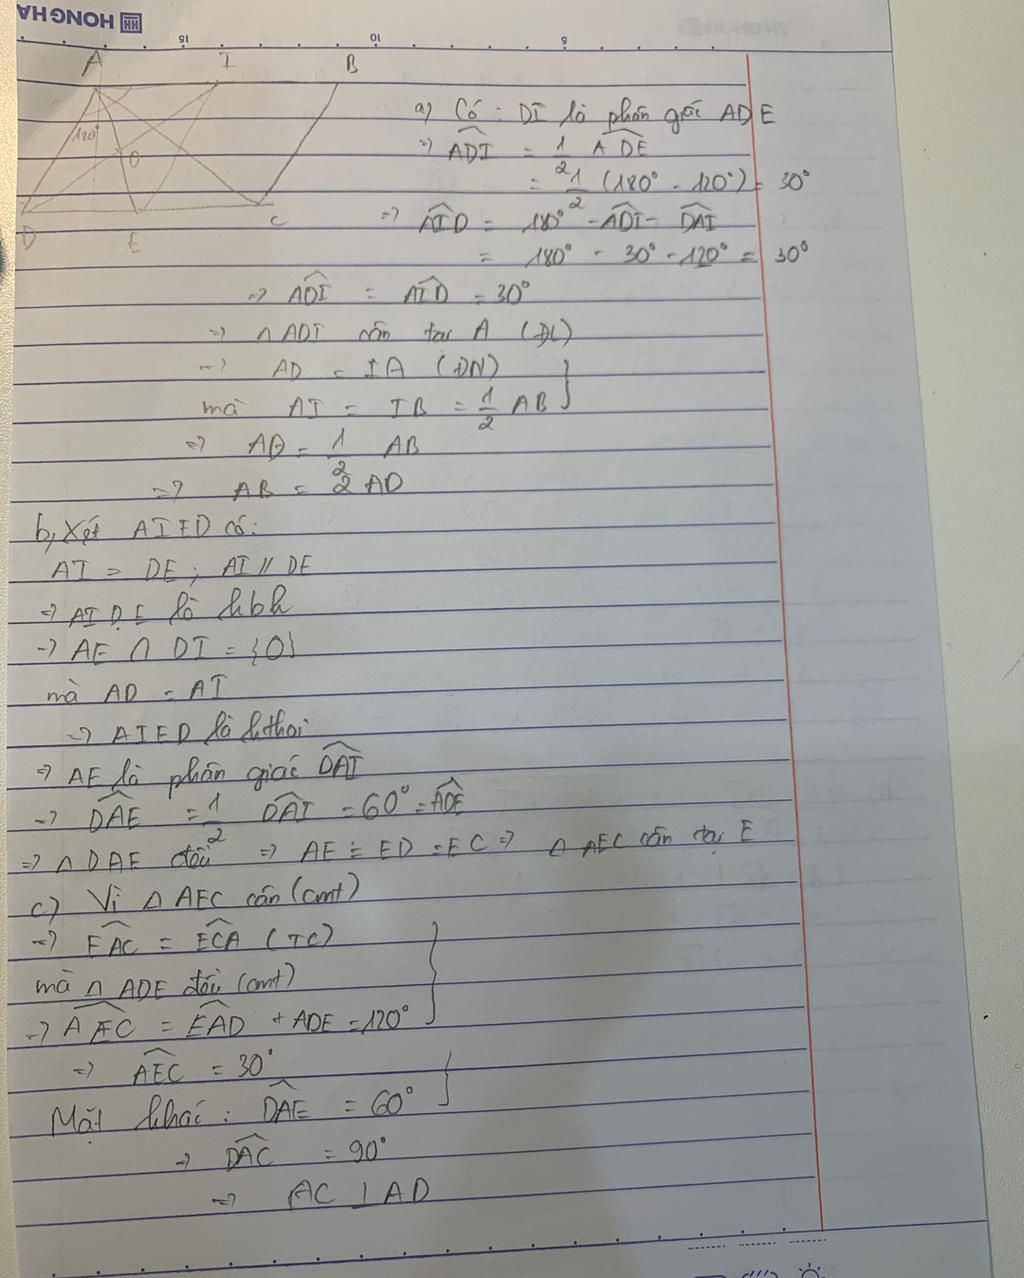 HONG HA
15 10 5
A I B
120°
O
D E C
a) Có : DI là phân giác ADE
=> ADI = 1/2 ADE
= 1/2 (180° - 120°) = 30°
=> AID = 180° - ADI - DAI
= 180° - 30° - 120° = 30°
=> ADI = AID = 30°
=> △ ADI cân tại A (ĐL)
=> AD = IA (ĐN)
mà AI = IB = 1/2 AB
=> AD = 1/2 AB
=> AB = 2 AD
b, Xét AIED có:
AI = DE ; AI // DE
=> AIDE là hbh
-> AE ∩ DI = {O}
mà AD = AI
-> AIED là hthoi
=> AE là phân giác DAI
-> DAE = 1/2 DAI = 60° = ADE
=> △ DAE đều => AE = ED = EC => △ AEC cân tại E
c) Vì △ AEC cân (cmt)
-> EAC = ECA (TC)
mà △ ADE đều (cmt)
-> AEC = EAD + ADE = 120°
=> AEC = 30°
Mặt khác : DAE = 60°
-> DAC = 90°
=> AC ⊥ AD